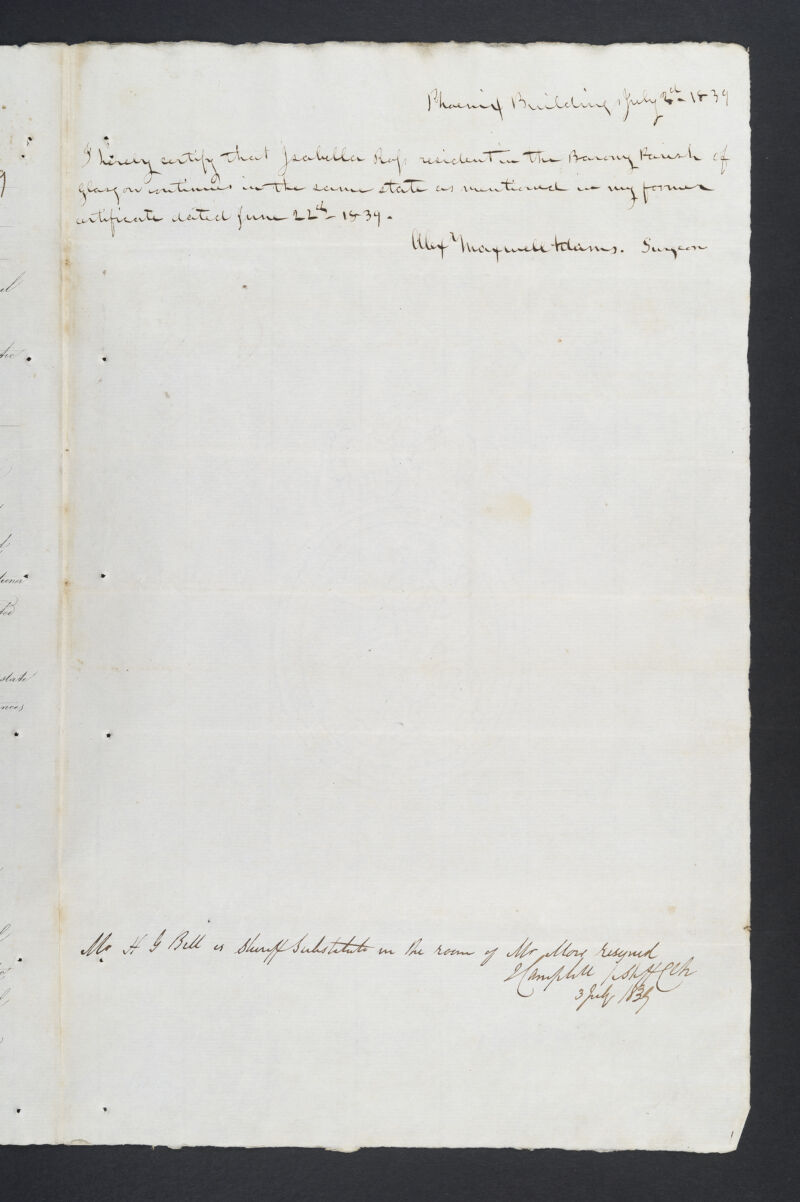 Phoenix Buildings July 3d - 1839
I hereby certify that Isabella Ross resident in the Barony Parish of
Glasgow continues in the same state as mentioned in my former
certificate dated June 22d - 1839 -
Alexr Maxwell Adams. Surgeon
Mr H G Bell is Sheriff Substitute in the room of Mr More resigned
Campbell Clk
3 July 1839
tioner
state